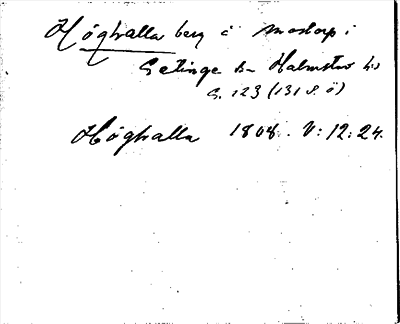 Höghalla berg i Mostorp i
Getinge sn Halmstad hd
S. 123 (131 S. ö)
Höghalla 1808. V: 12: 24.